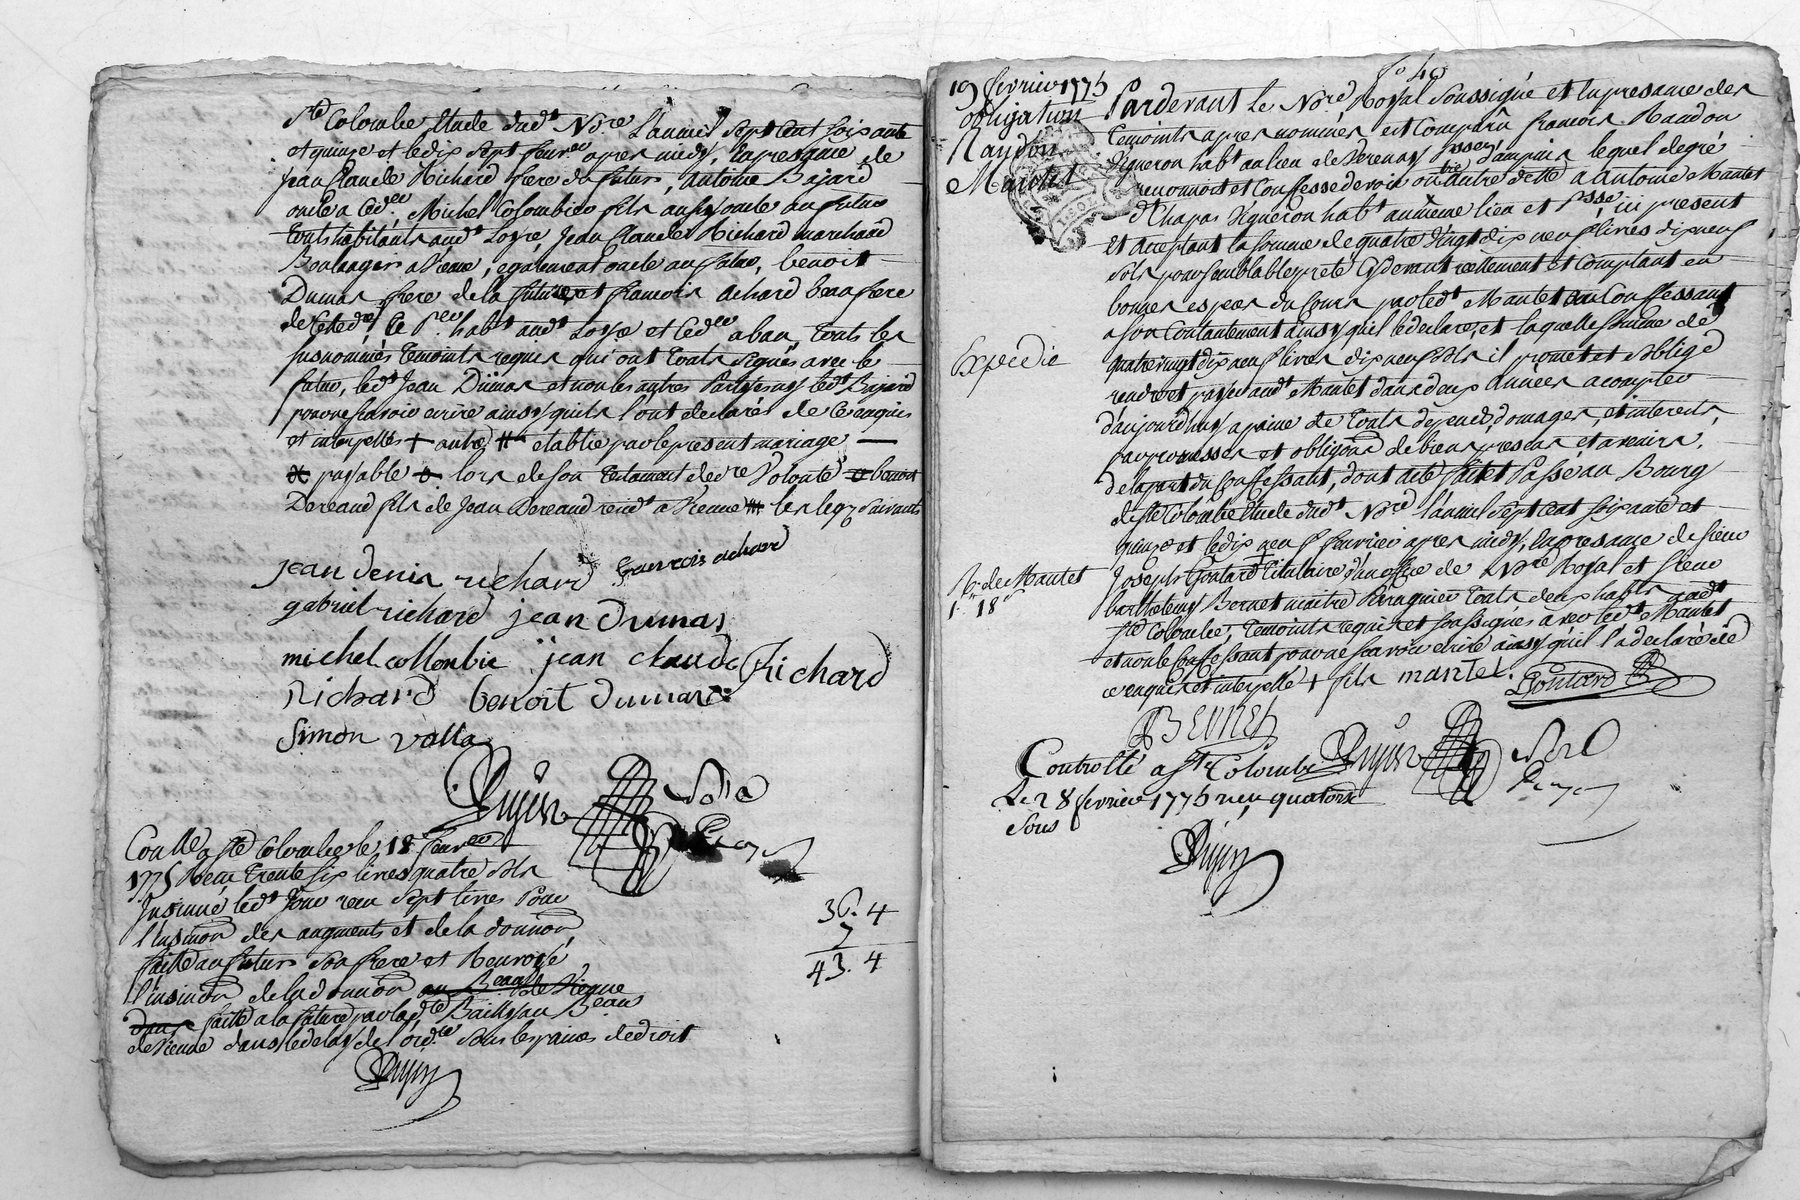 Ste Colombe Etude dudt Nore L'an mil sept cent soixante
et quinze et le dix sept fevrer apres midy, En presence de
Jean Claude Richard frere du futur, Antoine Bajard
oncle a Cedr, Michel Colombier fils aussy oncle au futur
touts habitants audt Loyre, Jean Claude Richard marchand
Boulanger a Vienne, egalement oncle au futur, benoit
Dumas frere de la future et francois Achard beaufrere
de habt audt Loyre et Cedr aban, touts les
susnommés temoints requis qui ont touts signés avec le
futur, ledt Jean Dumas et non les autres Parties ny ledt Bajard
pour ne scavoir ecrire ainsy quils l'ont declarés de ce enquis
et interpellés + autre # etablie par le present mariage —
payable lors de son testament de dre Volonté benoit
Dereaud fils de Jean Dereaud residt a Vienne les legs suivants
jean denis richard francois achard
gabriel richard jean Dumas
michel collonbie jean claude Richard
Richard benoit dumas
Simon valla
Dujin Nore
Conlle a Ste Colombe le 18 fevrer
1775 Receu trente six livres quatre sols
Insinué ledt Jour receu sept livres Pour
l'insinon des augments et de la donnon
faitte au futur Son frere et Renvoyé
l'insinon de la donnon au Beau de Vienne
dans faitte a la future par lade Bailly au Beau
de Vienne dans le delay de l'orde sous les peines de droit
36. 4
7
43. 4
Dujin
fo 40
19 fevrier 1775
obligation
Naydon
Mantet
Expedie
Pardevant le Nore Royal Soussigné et En presence des
temoints apres nommés est Comparû francois Naudon
Vigneron habt au lieu de Verenay Psse d'ampuis lequel de gré
reconnoit et Confesse devoir outre autre dette a Antoine Mantet
d'Chapas Vigneron habt au meme lieu et Psse, icy present
Et acceptant la somme de quatre Vingt dix neuf livres dix neuf
sols pour semblable preté Cydevant reellement et Comptant en
bonnes especes du Cours par ledt Mantet au Confessant
a son Contantement ainsy qu'il le declare, et laquelle somme de
quatre vingt dix neuf livres dix neuf sols il promet et s'oblige
rendre et payer audt Mantet dans deux Années a compter
d'aujourd'huy a peine de touts depends, domages, et interests,
par promesses et obligons de biens presens et avenirs,
de la part du Confessant, dont acte fait et Passé au Bourg
de Ste Colombe Etude dudt Nore l'an mil sept cent soixante et
quinze et le dix neuf fevrier apres midy, En presence de sieur
Joseph Goutard titulaire d'un office de Nore Royal et sieur
barthelemy Bernet maitre Péruquier touts deux habts audt
Ste Colombe, temoints requis et soussignés avec ledt Mantet
et non le Confessant pour ne scavoir ecrire ainsy quil l'a declaré de
ce enquis et interpellé + fils mantel. Goutard
de Mantet
1. 18
Bernet
Dujin Nore
Controllé a Ste Colombe
Le 28 fevrier 1775 receu quatorze
Sous
Dujin